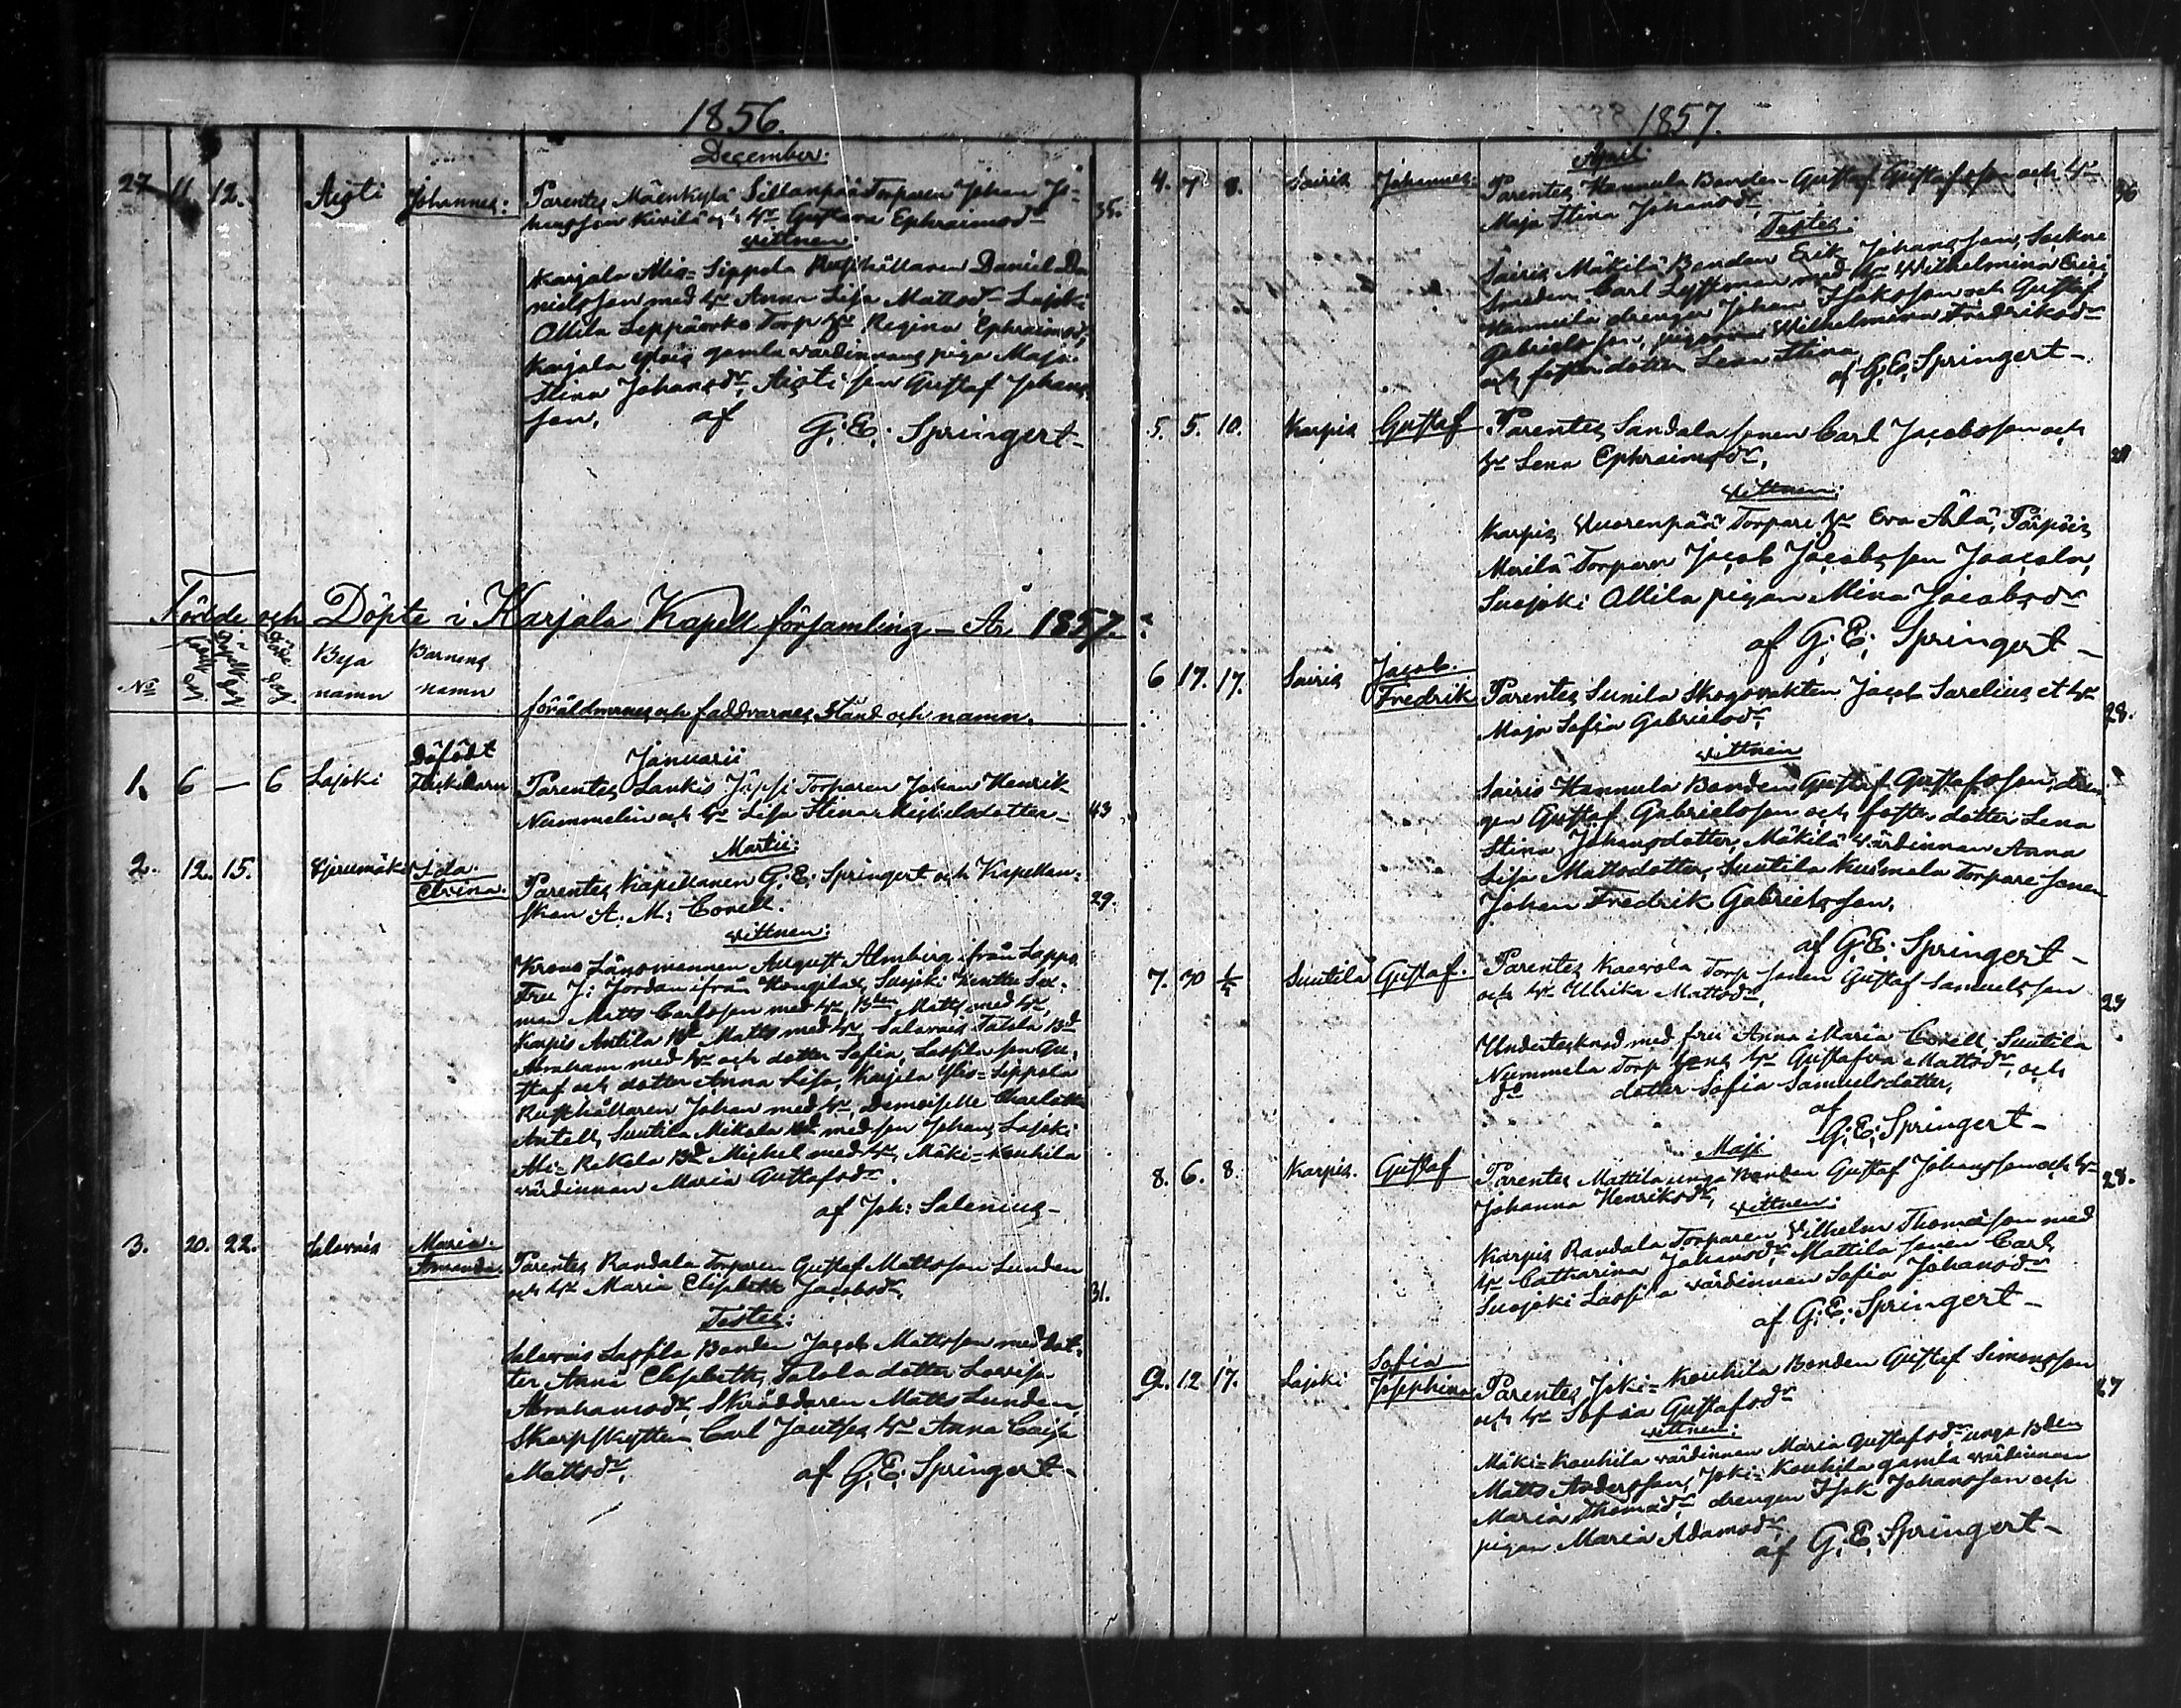 1856.
December:
27 11. 12. Aisti Johannes: Parentes Mäenkylä Sillanpää Torparen Johan Jo= 35.
hansson Kivilä och hr Gustava Ephraimsdr
vittnen:
Karjala Alis=Sippola Rusthållaren Daniel Da
nielsson med hr Anna Lisa Mattsdr Lasjoki
Ollila Leppäorko Torp hr Regina Ephraimsdr,
Karjala gamla värdinnans piga Maja
Stina Johansdr, Aisti son Gustaf Johans
son, af G: E: Springert
Födde och Döpte i Karjala Kapell församling År 1857.
No Bya namn Barnens namn
föräldrarnes och faddrarnes Stånd och namn.
Januarii
1. 6 — 6 Lasjoki Dödfödt Flickebarn Parentes Lankis Torparen Johan Henrik 43
Nummelin och hr Lisa Stina Michelsdotter
Martii:
2. 12. 15. Ida Elvina. Parentes Kapellanen G: E: Springert och Kapellan= 29.
skan A: M: Corell.
vittnen:
Krono Länsmannen August Almberg ifrån Lappo
Fru J: Jordan ifrån Suojoki Sex=
man Matts Carlsson med hr, Bden Matts med hr,
Karpis Antila Bd Matts med hr, Salavais Talola Bd
Abraham med hr och dotter Sofia, Lassila son Gu=
staf och dotter Anna Lisa, Karjala Ylis=Sippola
Rusthållaren Johan med hr, Demoiselle Charlotta
Antell, Suutila Mikola Bd med son Johan, Lasjoki
Ali=Rekola Bd Michel med hr, Mäki=Kouhila
värdinnan Maria Gustafsdr.
af Joh: Salenius
3. 20. 22. Salavais Maria Amanda. Parentes Randala Torparen Gustaf Mattsson Lunden 31.
och hr Maria Elisabeth Jacobsdr,
Testes:
Salavais Lassila Bonden Jacob Mattsson med dot=
ter Anna Elisabeth, Talola dotter Lovisa
Abrahamsdr, Skräddaren Matts Lunden
Skarpskytten Carl hr Anna Caisa
Mattsdr, af G: E: Springert
1857.
April:
4. 7 8. Sairis Johannes: Parentes Hannula Bonden Gustaf Gustafsson och hr 36
Maja Stina Johansdr,
Testes:
Sairis Mäkilä Bonden Erik Johansson, Sockne
Smeden Carl med hr Wilhelmina
Hannula drenger Johan Isaksson och Gustaf
Gabrielsson, pigorna Wilhelmina Fredriksdr
och fosterdotter Lena Stina
af G: E: Springert
5. 5. 10. Karpis Gustaf Parentes Sandala sonen Carl Jacobsson och
hr Lena Ephraimsdr,
vittnen:
Karpis Vuorenpää Torpare hr Eva
Merilä Torparen Jacob Jacobsson
Suojoki Ollila pigan Mina Jacobsdr
af G: E: Springert
6 17. 17. Sairis Jacob Fredrik Parentes Sunila Skogsvakten Jacob Sarelius et hr 28.
Maja Sofia Gabrielsdr
vittnen
Sairis Hannula Bonden Gustaf Gustafsson, dren
gen Gustaf Gabrielsson och foster dotter Lena
Stina Johansdotter, Mäkilä värdinnan Anna
Lisa Mattsdotter, Suutila Torpare sonen
Johan Fredrik Gabrielsson,
af G: E: Springert
7. 30 Suutila Gustaf. Parentes Torp sonen Gustaf Samuelsson 29
och hr Ulrika Mattsdr,
Undertecknad med fru Anna Maria Corell, Suutila
Nummela Torp hr Gustafva Mattsdr, och
do dotter Sofia Samuelsdotter,
af G: E: Springert
Maji
8. 6. 8. Karpis. Gustaf Parentes Mattila unga Bonden Gustaf Johansson och hr 28.
Johanna Henriksdr,
vittnen:
Karpis Randala Torparen Wilhelm Thomasson med
hr Catharina Johansdr, Mattila sonen Carl,
Suojoki Lassila värdinnan Sofia Johansdr
af G: E: Springert
9. 12 17. Lasjoki Sofia Josephina Parentes Joki=Kouhila Bonden Gustaf Simonsson 27
och hr Sofia Gustafsdr
vittnen:
Mäki=Kouhila värdinnan Maria Gustafsdr, unga Bden
Matts Andersson, Joki=Kouhila gamla värdinnan
Maria Thomasdr, drengen Isak Johansson och
pigan Maria Adamsdr
af G: E: Springert